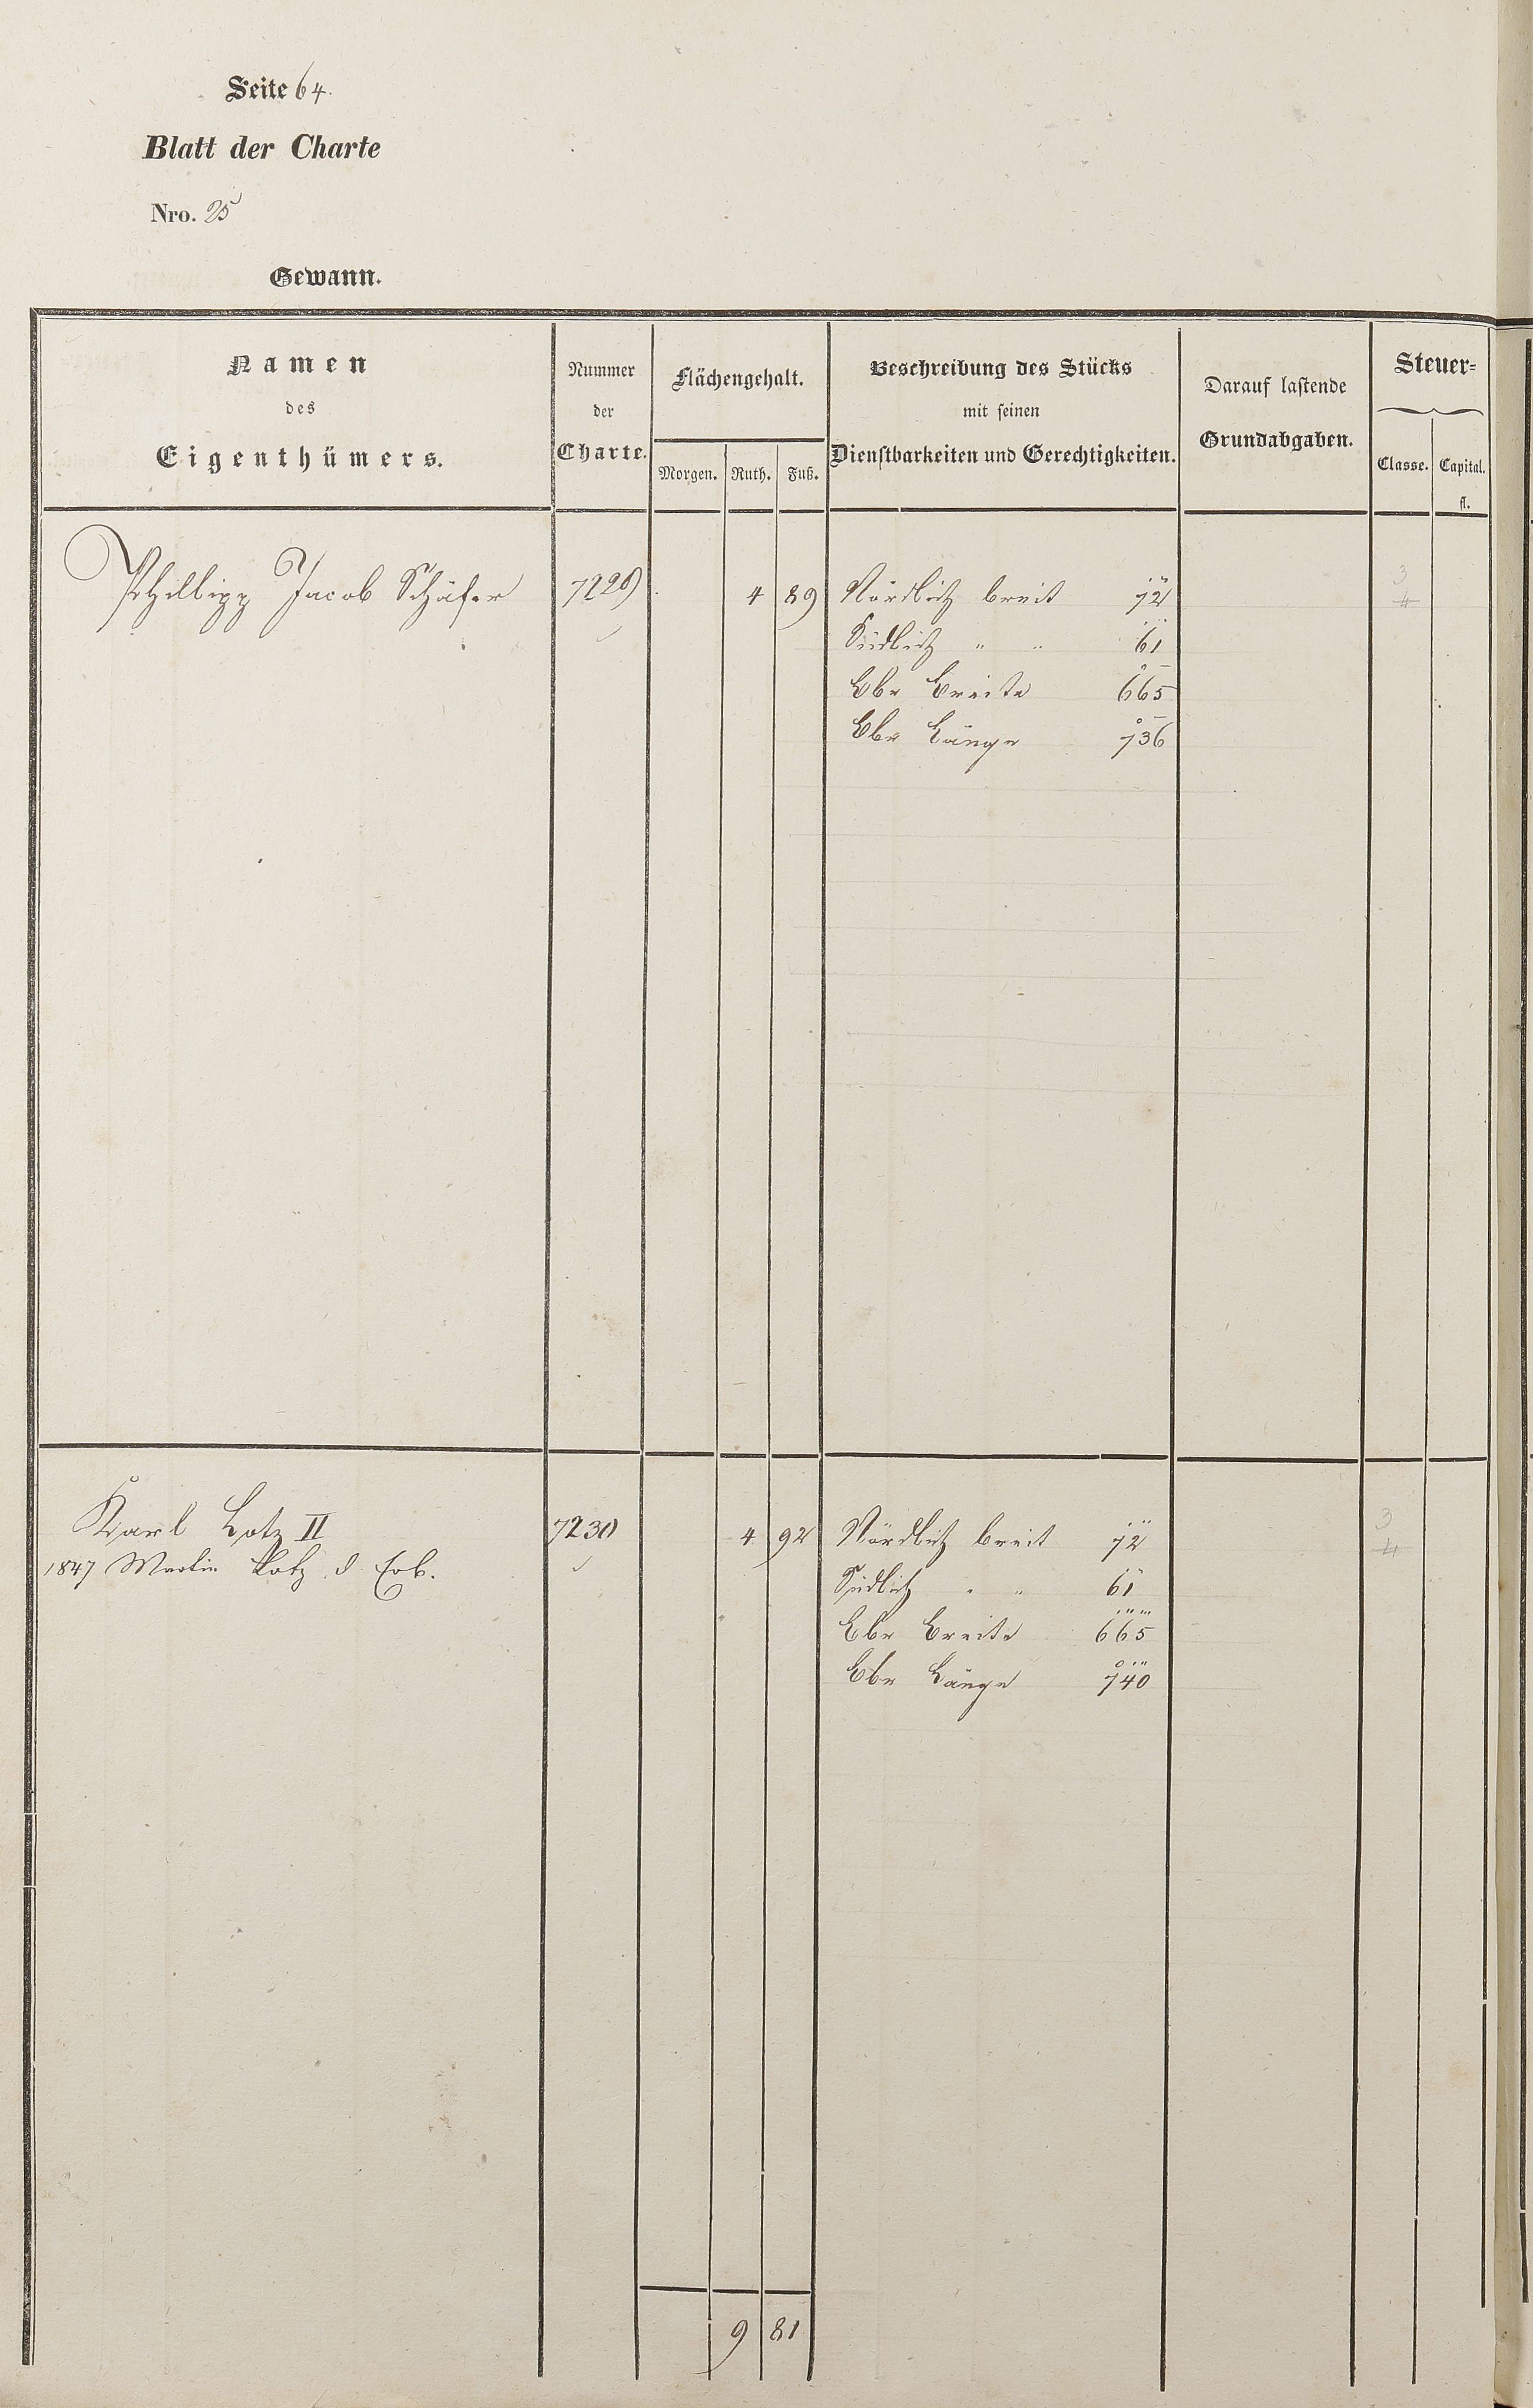 Seite 64.
Blatt der Charte
Nro. 25
Gewann.
Namen des Eigenthümers.
Nummer der Charte.
Flächengehalt.
Morgen. Ruth. Fuß.
Beschreibung des Stücks mit seinen Dienstbarkeiten und Gerechtigkeiten.
Darauf lastende Grundabgaben.
Steuer=
Classe. Capital. fl.
Phillipp Jacob Schäfer 7229 4 89 Nördlich breit 72 3
Südlich " " 61 4
Ebr Breite 665
Ebr Länge 736
Karl Lotz II 7230 4 92 Nördlich breit 72 3
1847 Martin Lotz d Erb. Südlich " " 61 4
Ebr Breite 665
Ebr Länge 740
9 81